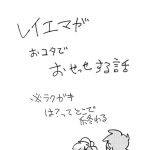 レイエマが
おコタで
おせっせする話
※ラクガキ
はてってとこで
終わる